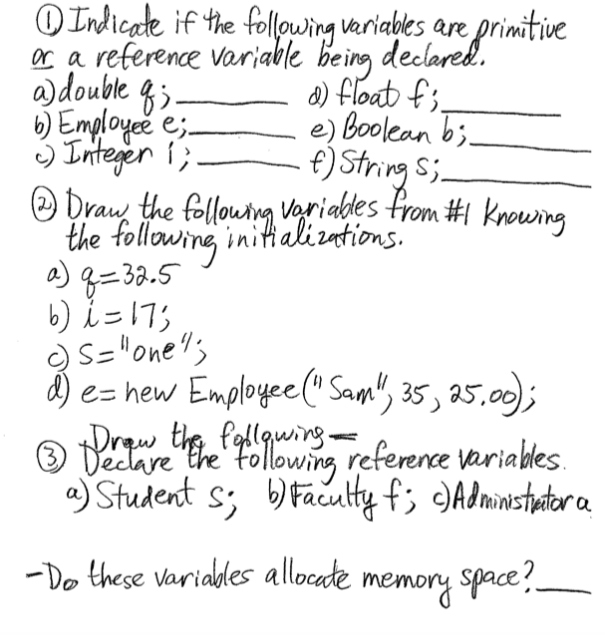 ① Indicate if the following variables are primitive
or a reference variable being declared.
a) double q; ______ d) float f; ______
b) Employee e; ______ e) Boolean b; ______
c) Integer i; ______ f) String s; ______
② Draw the following variables from #1 knowing
the following initializations.
a) q=32.5
b) i=17;
c) s="one";
d) e= new Employee("Sam", 35, 25.00);
Draw the following
③ Declare the following reference variables.
a) Student s; b) Faculty f; c) Administrator a
- Do these variables allocate memory space? ____